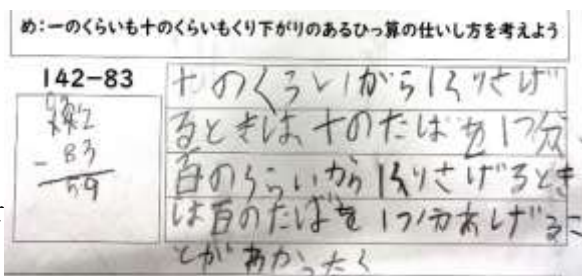 め:一のくらいも十のくらいもくり下がりのあるひっ算の仕いし方を考えよう
142-83
142
- 83
59
十のくらいからくりさげ
るときは、十のたばを1つ分、
百のくらいからくりさげるとき
は百のたばを1つ分あしげるこ
とがあかったく